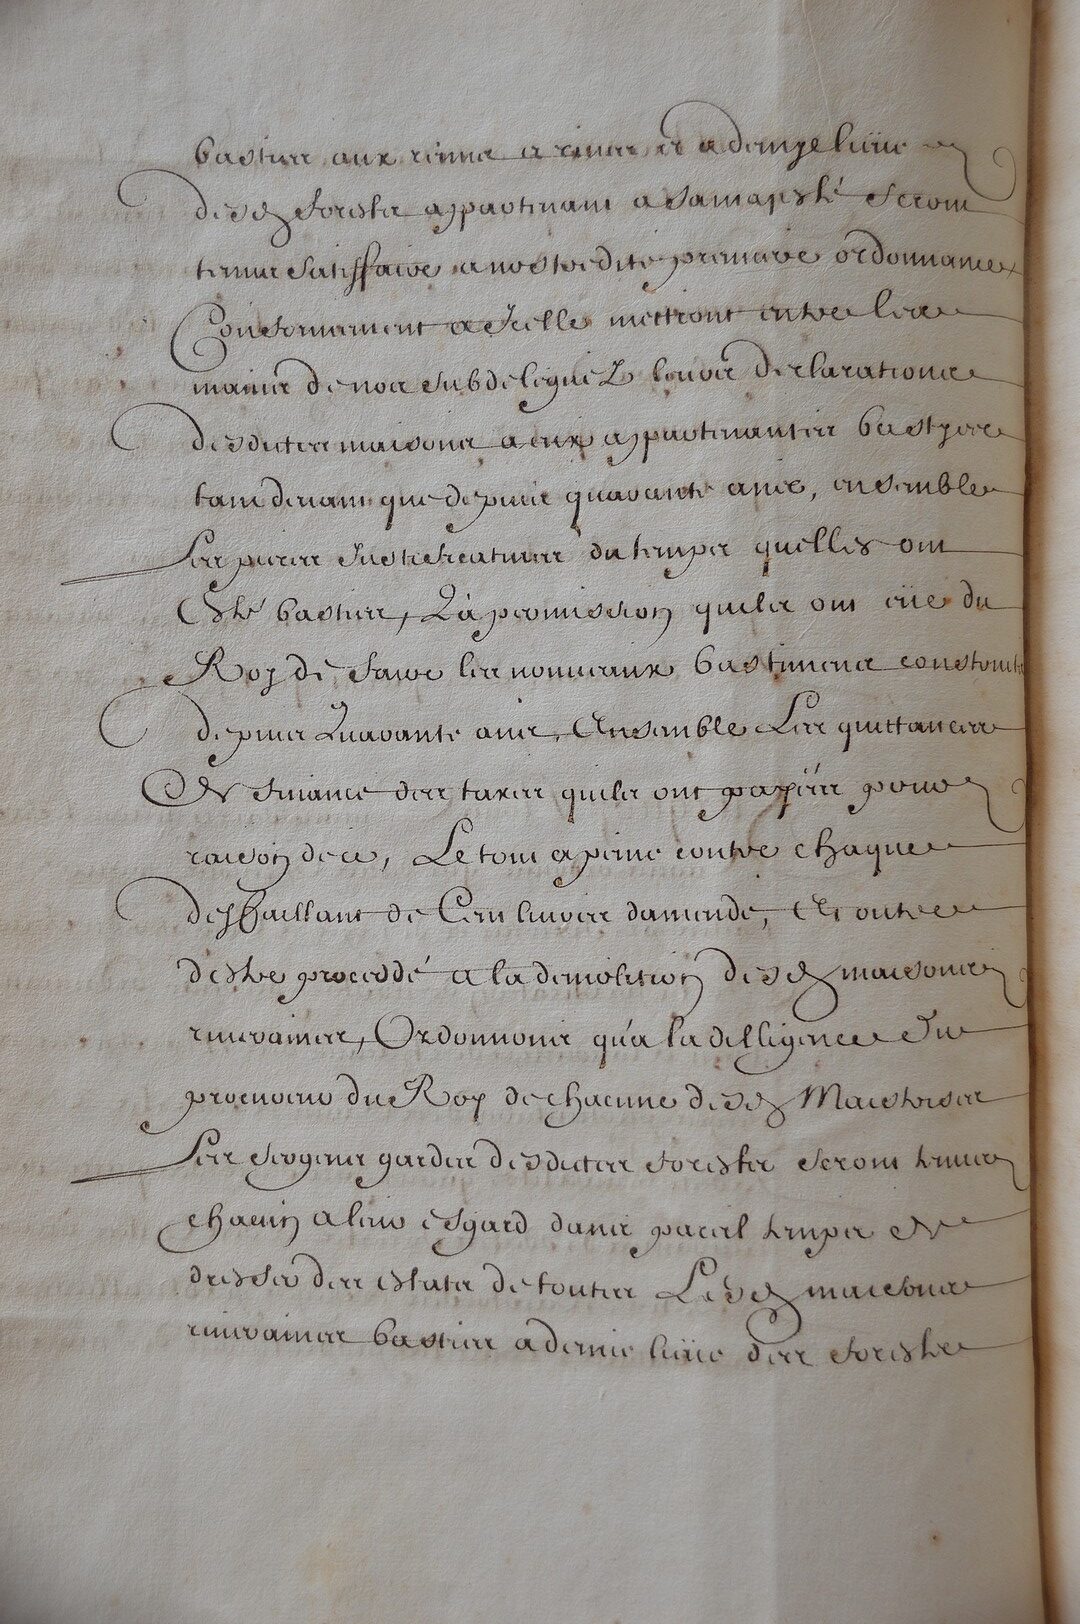 basties aux rennes a rennes et a demye lieüe
desd. forests appartenant a sa majesté seront
tenus satisffaire a nostredite premiere ordonnance
Conformement a Icelle mettront entre les
mains de nos subdeleguéz leurs declarations
desdittes maisons a eux appartenantes basties
tant devant que depuis quarante ans, ensemble
Les pieces Justificatives du temps quelles ont
Esté basties, La permission quils ont eüe du
Roy de faire les nouveaux bastimens construits
depuis Quarante ans, Ensemble Les quittances
De finance des taxes quils ont payées pour
raison de ce, Le tout a peine contre chaque
deffaillant de Cent livres damende, Et outre
destre procedé a la demolition desd. maisons
riveraines, Ordonnons qu'a la delligence du
procureur du Roy de chacune desd. Maistrises
Les sergens gardes desdittes forests seront tenus
chacun a leur esgard dans pareil temps de
dresser des estats de toutes Lesd. maisons
riveraines basties a demie lieüe des forests